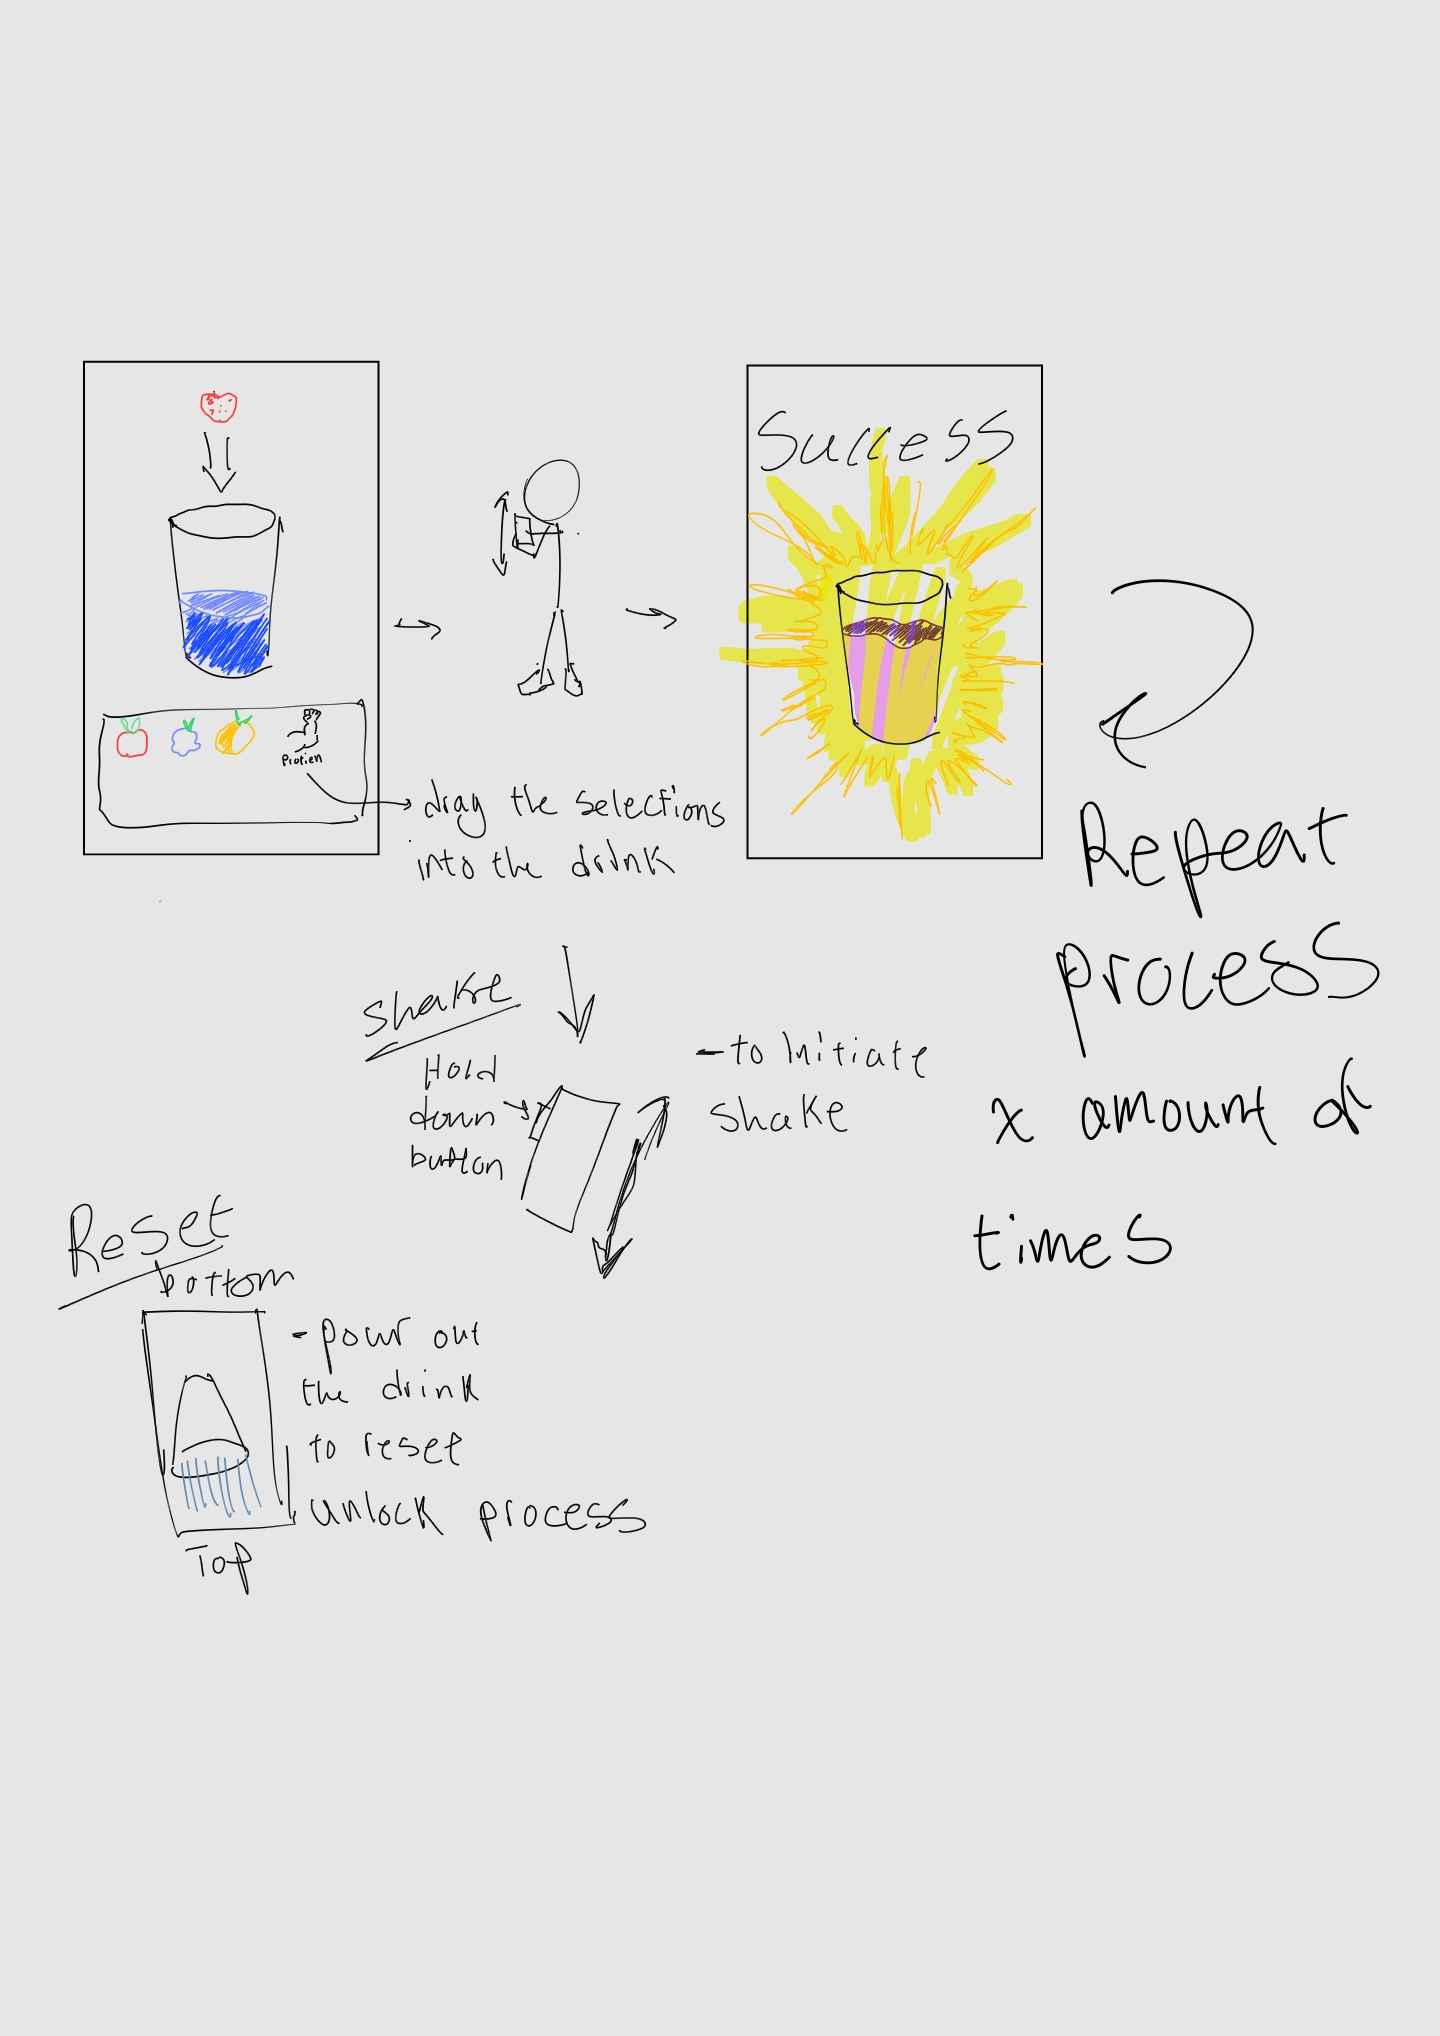 Success
Protien
drag the selections
into the drink
Repeat
process
x amount of
times
Shake
Hold
down
button
- to initiate
shake
Reset
bottom
- pour out
the drink
to reset
unlock process
Top